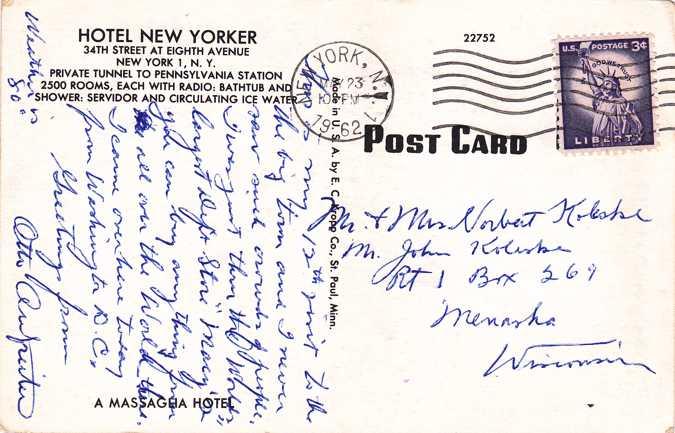 HOTEL NEW YORKER
34TH STREET AT EIGHTH AVENUE
NEW YORK 1, N. Y.
PRIVATE TUNNEL TO PENNSYLVANIA STATION
2500 ROOMS, EACH WITH RADIO: BATHTUB AND
SHOWER: SERVIDOR AND CIRCULATING ICE WATER
Weather is
80°
is my 12th visit to the
the big town and I never
saw such crowds of people.
I was just thru the Worlds
largest Dept. Store "Macy's
you can buy anything from
all over the World there.
I came over here today
from Washington D.C.
Greetings from
Otto
A MASSAGLIA HOTEL
Made in U. S. A. by E. C. Kropp Co., St. Paul, Minn.
22752
NEW YORK, N.Y.
23
PM
1962
U.S. POSTAGE 3¢
IN GOD WE TRUST
LIBERTY
POST CARD
Mr. & Mrs Norbert Koleske
Mr. John Koleske
RT 1 Box 269
Menasha
Wisconsin